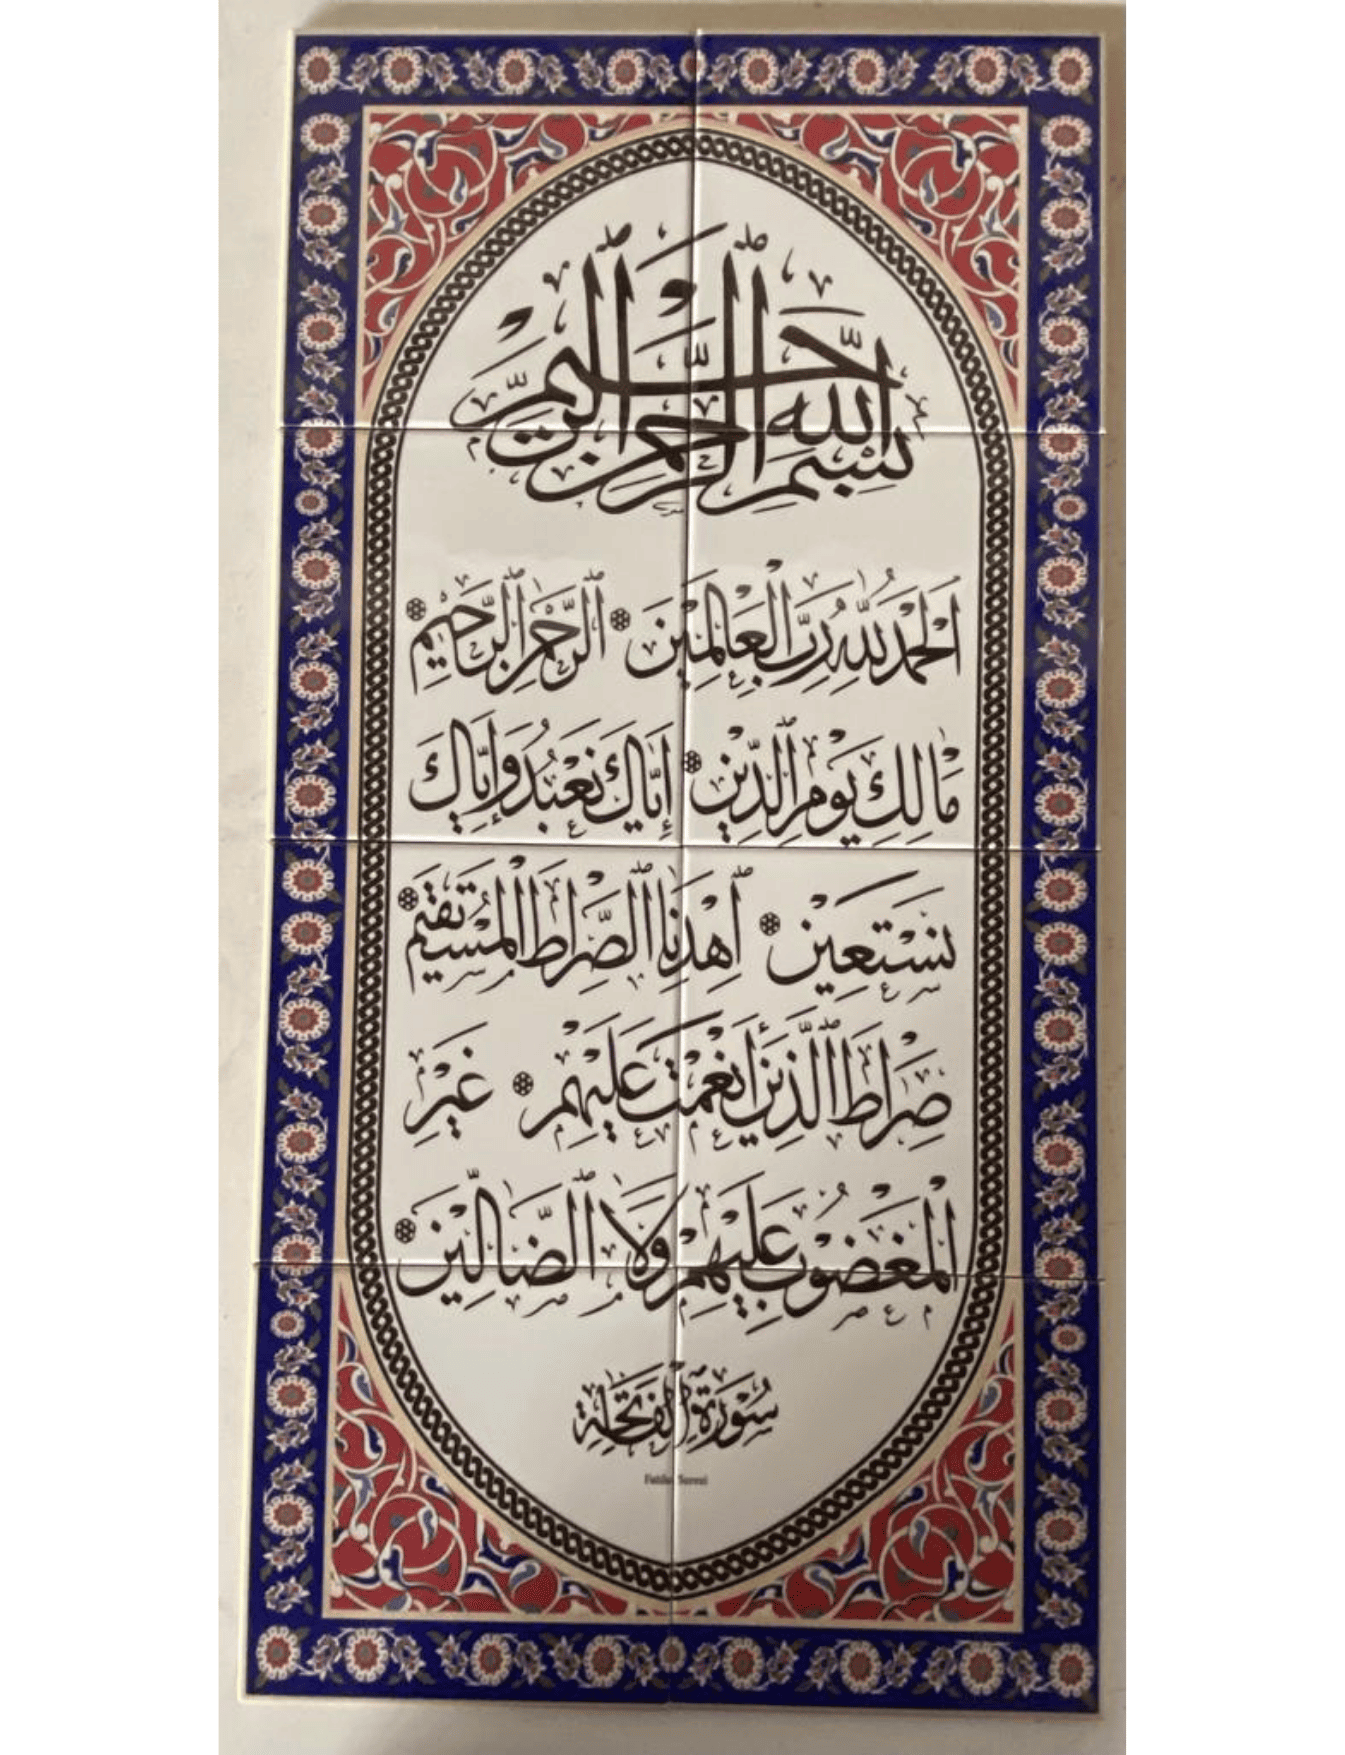 بِسْمِ اللّٰهِ الرَّحْمٰنِ الرَّحِيْمِ
اَلْحَمْدُ لِلّٰهِ رَبِّ الْعَالَمِيْنَ ۞ اَلرَّحْمٰنِ الرَّحِيْمِ ۞
مَالِكِ يَوْمِ الدِّيْنِ ۞ اِيَّاكَ نَعْبُدُ وَاِيَّاكَ
نَسْتَعِيْنُ ۞ اِهْدِنَا الصِّرَاطَ الْمُسْتَقِيْمَ ۞
صِرَاطَ الَّذِيْنَ اَنْعَمْتَ عَلَيْهِمْ ۞ غَيْرِ
الْمَغْضُوْبِ عَلَيْهِمْ وَلَا الضَّالِّيْنَ ۞
سُوْرَةُ الْفَاتِحَةِ
Fatiha Suresi